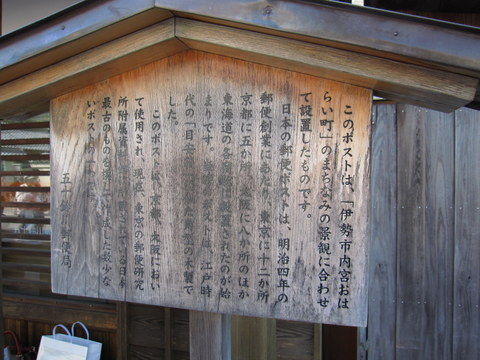 このポストは、「伊勢市内宮おは
らい町」のまちなみの景観に合わせ
て設置したものです。
日本の郵便ポストは、明治四年の
郵便創業にあたり、東京に十二か所
京都に五か所、大阪に八か所のほか
東海道の各宿駅に設置されたのが始
まりです。ポストは、江戸時
代の「目安箱」に木製で
した。
このポストは、京都、大阪におい
て使用され、現在、東京の郵便研究
所附属資料館に日本
最古のものを復元作成した数少な
いポストの一つです。
五十鈴川郵便局